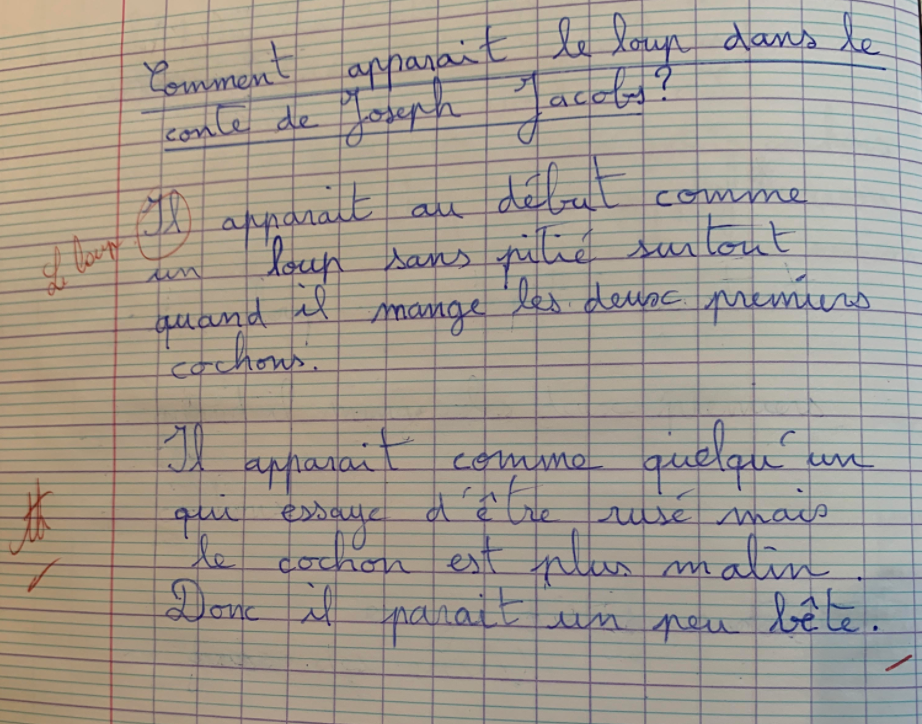 Comment apparait le loup dans le
conte de Joseph Jacobs?
Il apparait au début comme
Le loup
un loup sans pitié surtout
quand il mange les deux premiers
cochons.
Il apparait comme quelqu'un
qui essaye d'être rusé mais
le cochon est plus malin.
Donc il parait un peu bête.